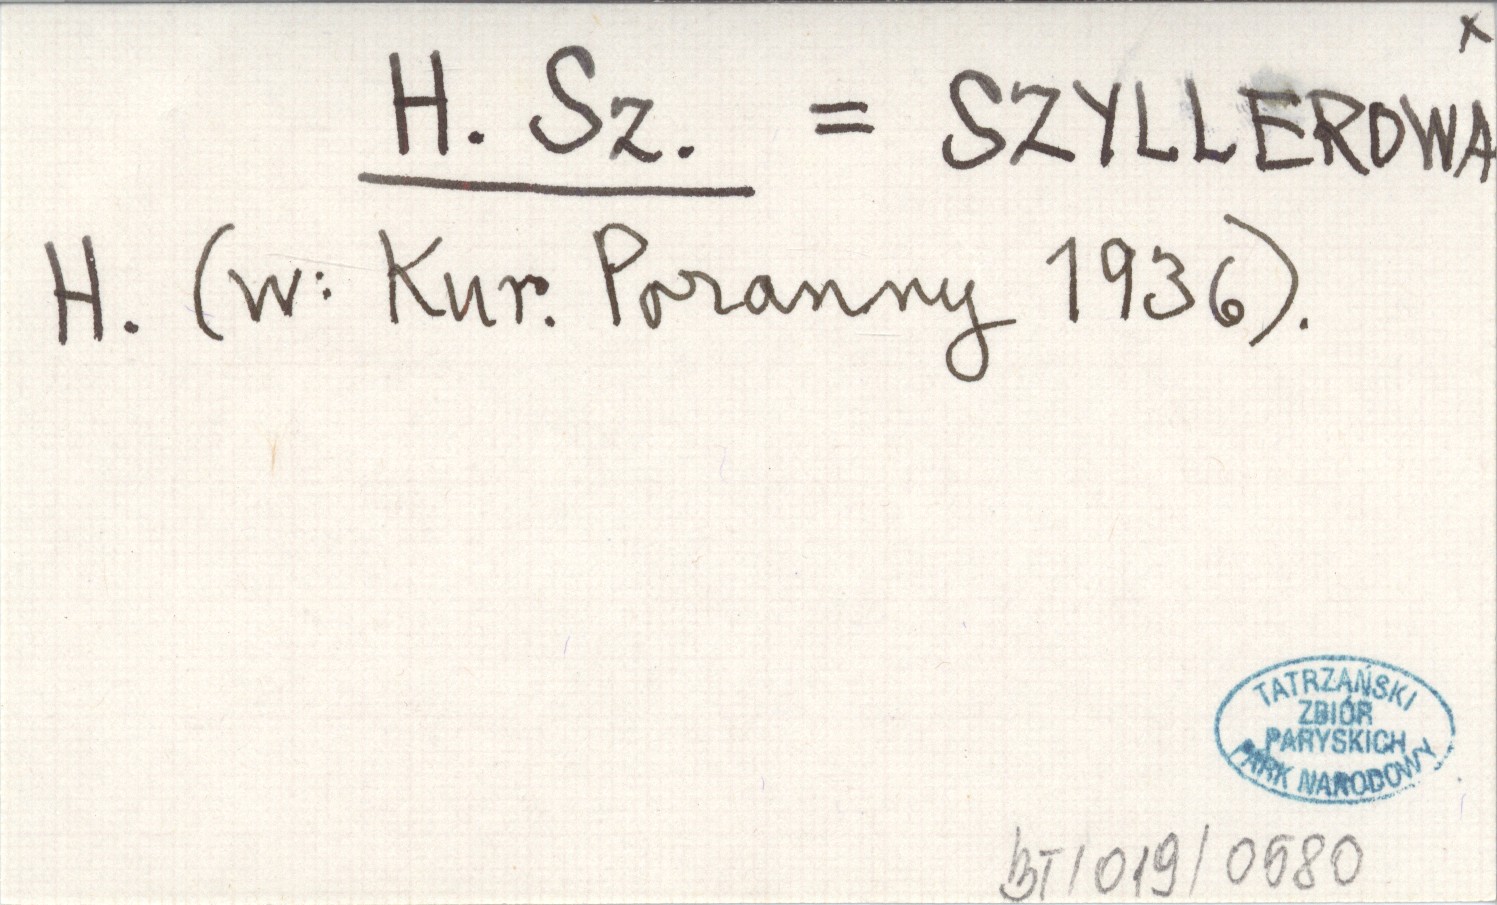 x
H. Sz. = SZYLLEROWA
H. (w: Kur. Poranny 1936).
TATRZAŃSKI
ZBIÓR
PARYSKICH
PARK NARODOWY
BT/019/0580